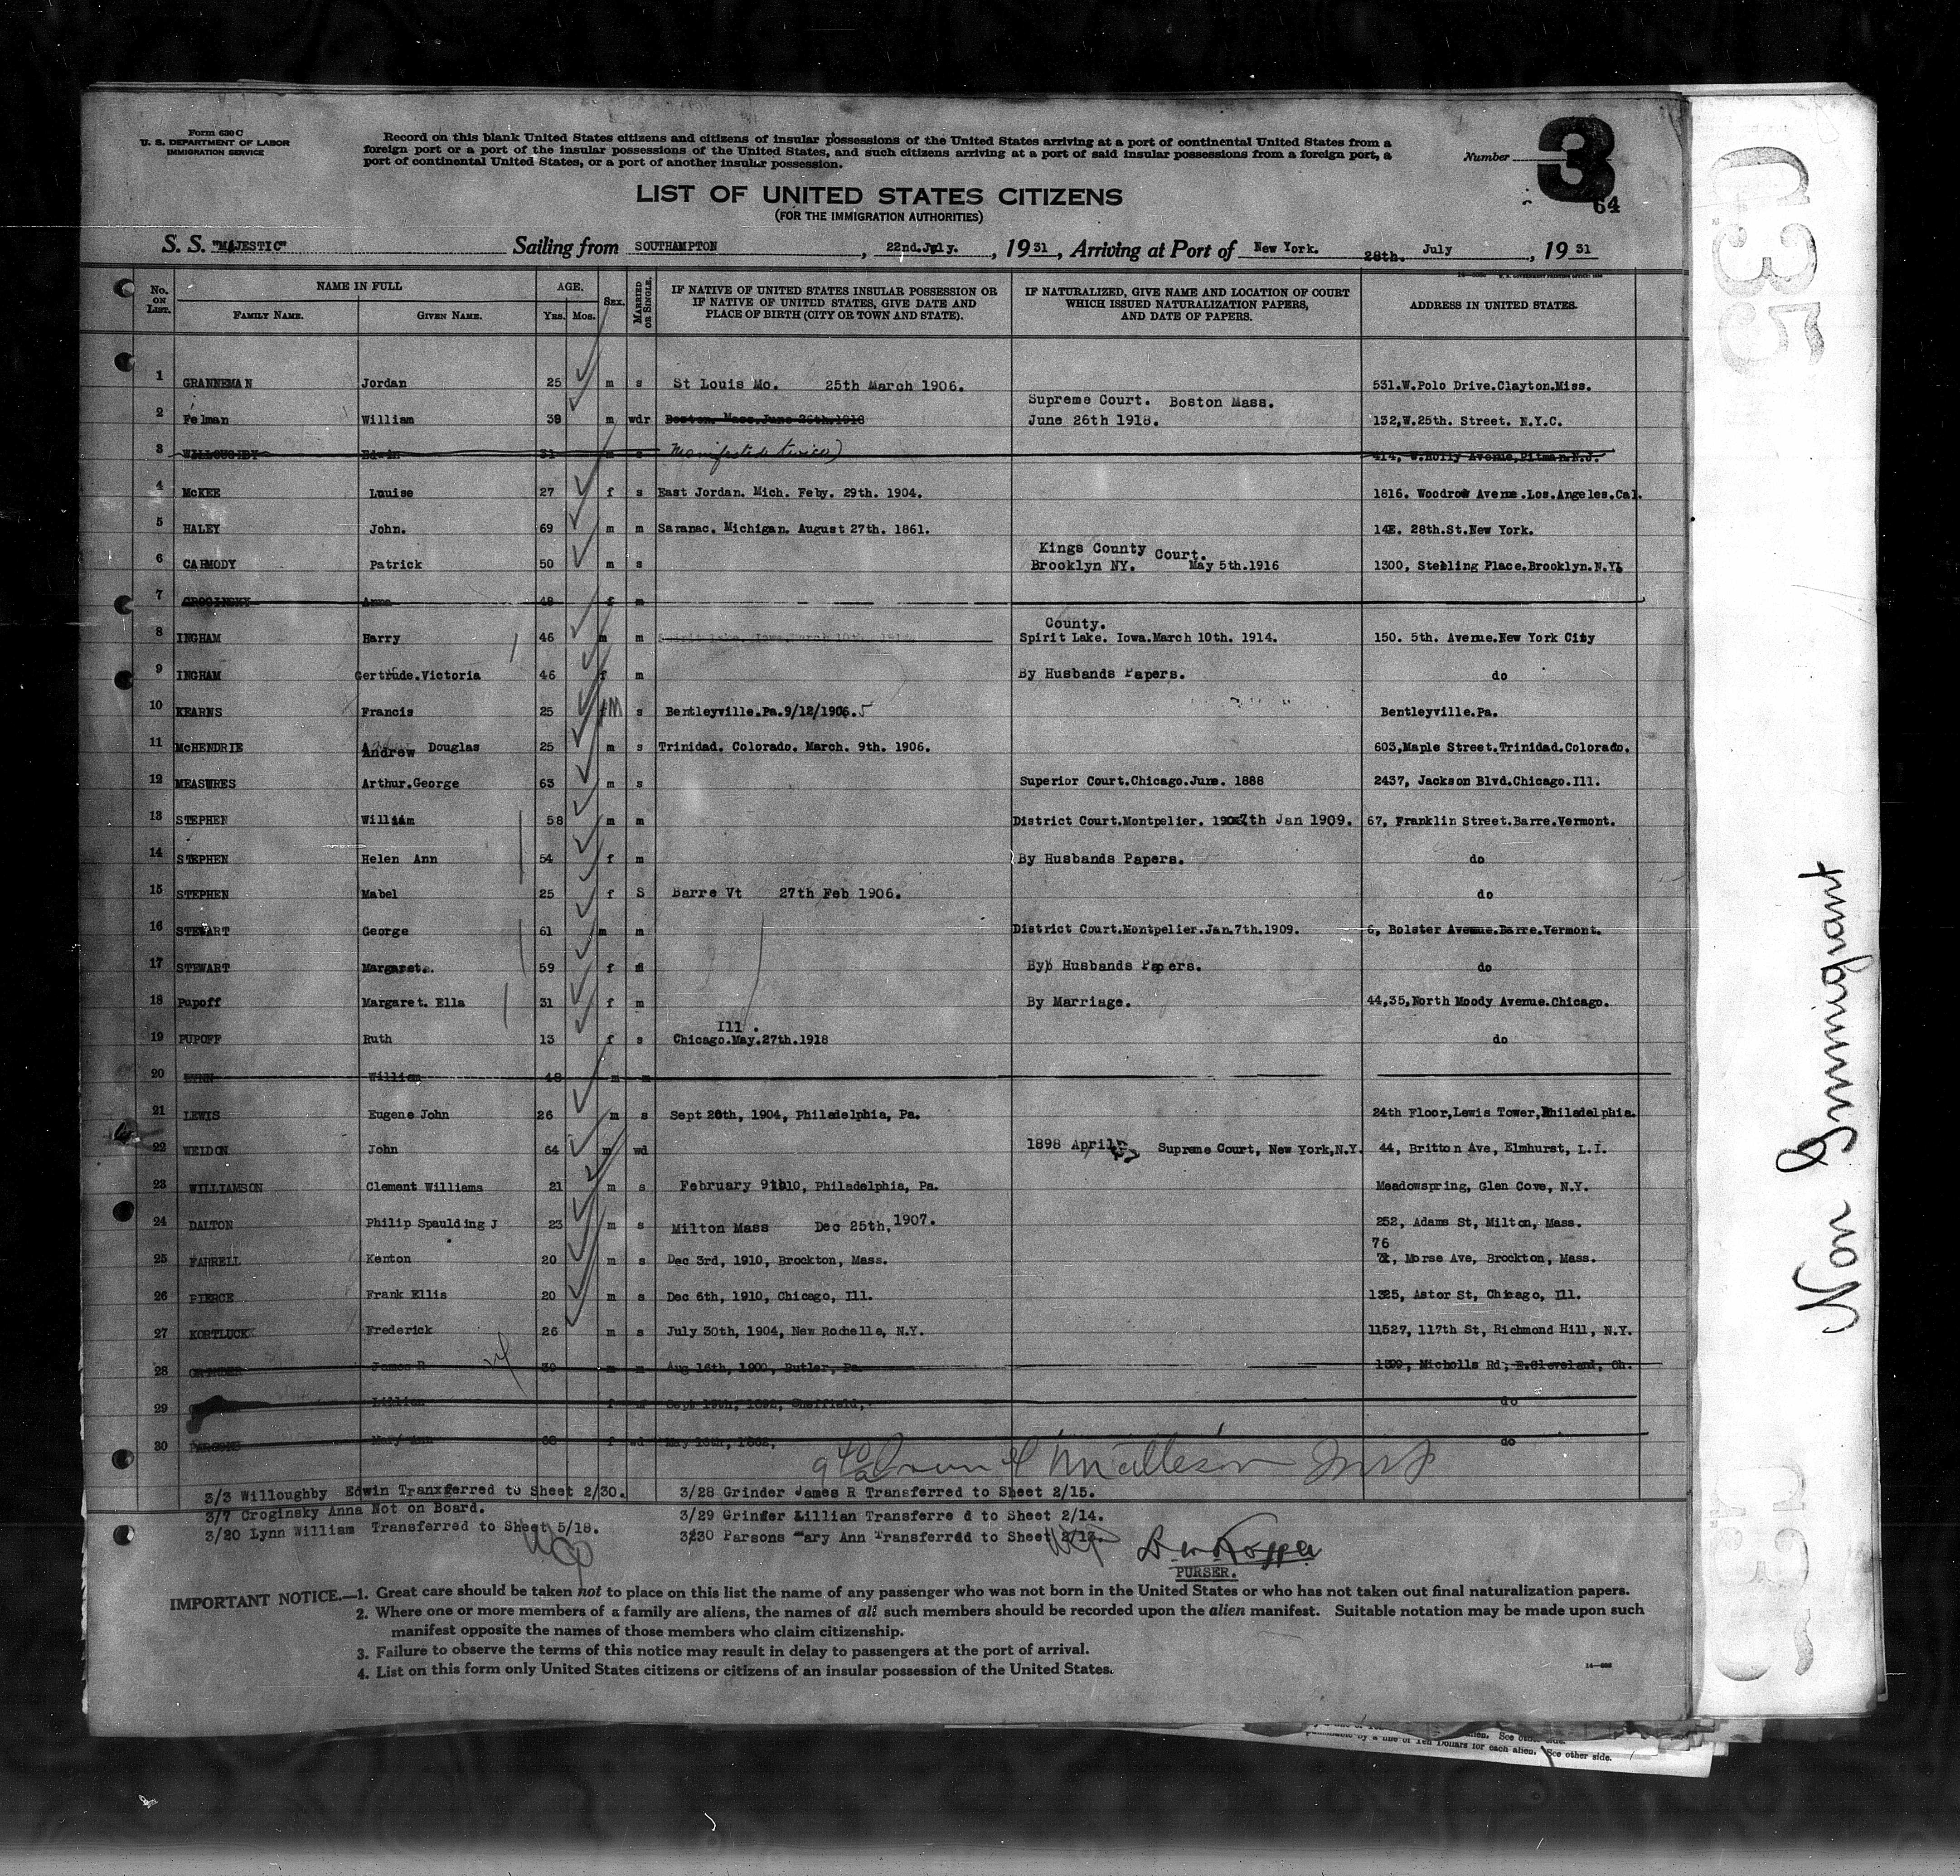 Form 630 C
U. S. DEPARTMENT OF LABOR
IMMIGRATION SERVICE
Record on this blank United States citizens and citizens of insular possessions of the United States arriving at a port of continental United States from a
foreign port or a port of the insular possessions of the United States, and such citizens arriving at a port of said insular possessions from a foreign port, a
port of continental United States, or a port of another insular possession.
Number 3
64
LIST OF UNITED STATES CITIZENS
(FOR THE IMMIGRATION AUTHORITIES)
S. S. "MAJESTIC" Sailing from SOUTHAMPTON, 22nd.July., 1931, Arriving at Port of New York. 28th. July, 1931
No. ON LIST. NAME IN FULL AGE. SEX. MARRIED OR SINGLE. IF NATIVE OF UNITED STATES INSULAR POSSESSION OR IF NATIVE OF UNITED STATES, GIVE DATE AND PLACE OF BIRTH (CITY OR TOWN AND STATE). IF NATURALIZED, GIVE NAME AND LOCATION OF COURT WHICH ISSUED NATURALIZATION PAPERS, AND DATE OF PAPERS. ADDRESS IN UNITED STATES.
FAMILY NAME. GIVEN NAME. YRS. MOS.
1 GRANNEMAN Jordan 25 m s St Louis Mo. 25th March 1906. 531.W.Polo Drive.Clayton.Miss.
Supreme Court. Boston Mass.
2 Felman William 38 m wdr Boston. Mass.June 26th.1918 June 26th 1918. 132,W.25th. Street. N.Y.C.
3 WILLOUGHBY Edwin 31 m s Manifested twice) 414, W.Holly Avenue,Pitman.N.J.
4 McKEE Louise 27 f s East Jordan. Mich. Feby. 29th. 1904. 1816. Woodrow Avenue.Los.Angeles.Cal.
5 HALEY John. 69 m m Saranac. Michigan. August 27th. 1861. 14E. 28th.St.New York.
Kings County Court.
6 CARMODY Patrick 50 m s Brooklyn NY. May 5th.1916 1300, Sterling Place.Brooklyn.N.Y.
7 CROGINSKY Anna 48 f m
County.
8 INGHAM Harry 46 m m Spirit Lake. Iowa.March 10th. 1914. Spirit Lake. Iowa.March 10th. 1914. 150. 5th. Avenue.New York City
9 INGHAM Gertrude.Victoria 46 f m By Husbands Papers. do
10 KEARNS Francis 25 M s Bentleyville.Pa.9/12/1906.5 Bentleyville.Pa.
11 McHENDRIE Andrew Douglas 25 m s Trinidad. Colorado. March. 9th. 1906. 603,Maple Street.Trinidad.Colorado.
12 MEASURES Arthur.George 63 m s Superior Court.Chicago.June. 1888 2437, Jackson Blvd.Chicago.Ill.
13 STEPHEN William 58 m m District Court.Montpelier. 7th Jan 1909. 67, Franklin Street.Barre.Vermont.
14 STEPHEN Helen Ann 54 f m By Husbands Papers. do
15 STEPHEN Mabel 25 f S Barre Vt 27th Feb 1906. do
16 STEWART George 61 m m District Court.Montpelier.Jan.7th.1909. 6, Bolster Avenue.Barre.Vermont.
17 STEWART Margaret. 59 f m By Husbands Papers. do
18 Pupoff Margaret. Ella 31 f m By Marriage. 44,35,North Moody Avenue.Chicago.
Ill.
19 PUPOFF Ruth 13 f s Chicago.May.27th.1918 do
20 LYNN William 48 m m
21 LEWIS Eugene John 26 m s Sept 20th, 1904, Philadelphia, Pa. 24th Floor,Lewis Tower,Philadelphia.
22 WEIDON John 64 m wd 1898 April Supreme Court, New York,N.Y. 44, Britton Ave, Elmhurst, L.I.
23 WILLIAMSON Clement Williams 21 m s February 9 1910, Philadelphia, Pa. Meadowspring, Glen Cove, N.Y.
24 DALTON Philip Spaulding J 23 m s Milton Mass Dec 25th,1907. 252, Adams St, Milton, Mass.
76
25 FARRELL Kenton 20 m s Dec 3rd, 1910, Brockton, Mass. Morse Ave, Brockton, Mass.
26 PIERCE Frank Ellis 20 m s Dec 6th, 1910, Chicago, Ill. 1325, Astor St, Chicago, Ill.
27 KORTLUCK Frederick 26 m s July 30th, 1904, New Rochelle, N.Y. 11527, 117th St, Richmond Hill, N.Y.
28 GRINDER James R 30 m m Aug 16th, 1900, Butler, Pa. 1899, Nicholls Rd, E.Cleveland, Oh.
29 Lillian f Sept 19th, 1892, Sheffield, do
30 PARSONS Mary Ann 68 f wd May 16th, 1862, do
3/3 Willoughby Edwin Tranxferred to Sheet 2/30. 3/28 Grinder James R Transferred to Sheet 2/15.
3/7 Croginsky Anna Not on Board. 3/29 Grinder Lillian Transferre d to Sheet 2/14.
3/20 Lynn William Transferred to Sheet 5/18. 3/30 Parsons Mary Ann Transferred to Sheet 2/13.
PURSER.
IMPORTANT NOTICE.—1. Great care should be taken not to place on this list the name of any passenger who was not born in the United States or who has not taken out final naturalization papers.
2. Where one or more members of a family are aliens, the names of all such members should be recorded upon the alien manifest. Suitable notation may be made upon such
manifest opposite the names of those members who claim citizenship.
3. Failure to observe the terms of this notice may result in delay to passengers at the port of arrival.
4. List on this form only United States citizens or citizens of an insular possession of the United States.
Non Immigrant
See other side.
punishable by a fine of Ten Dollars for each alien. See other side.